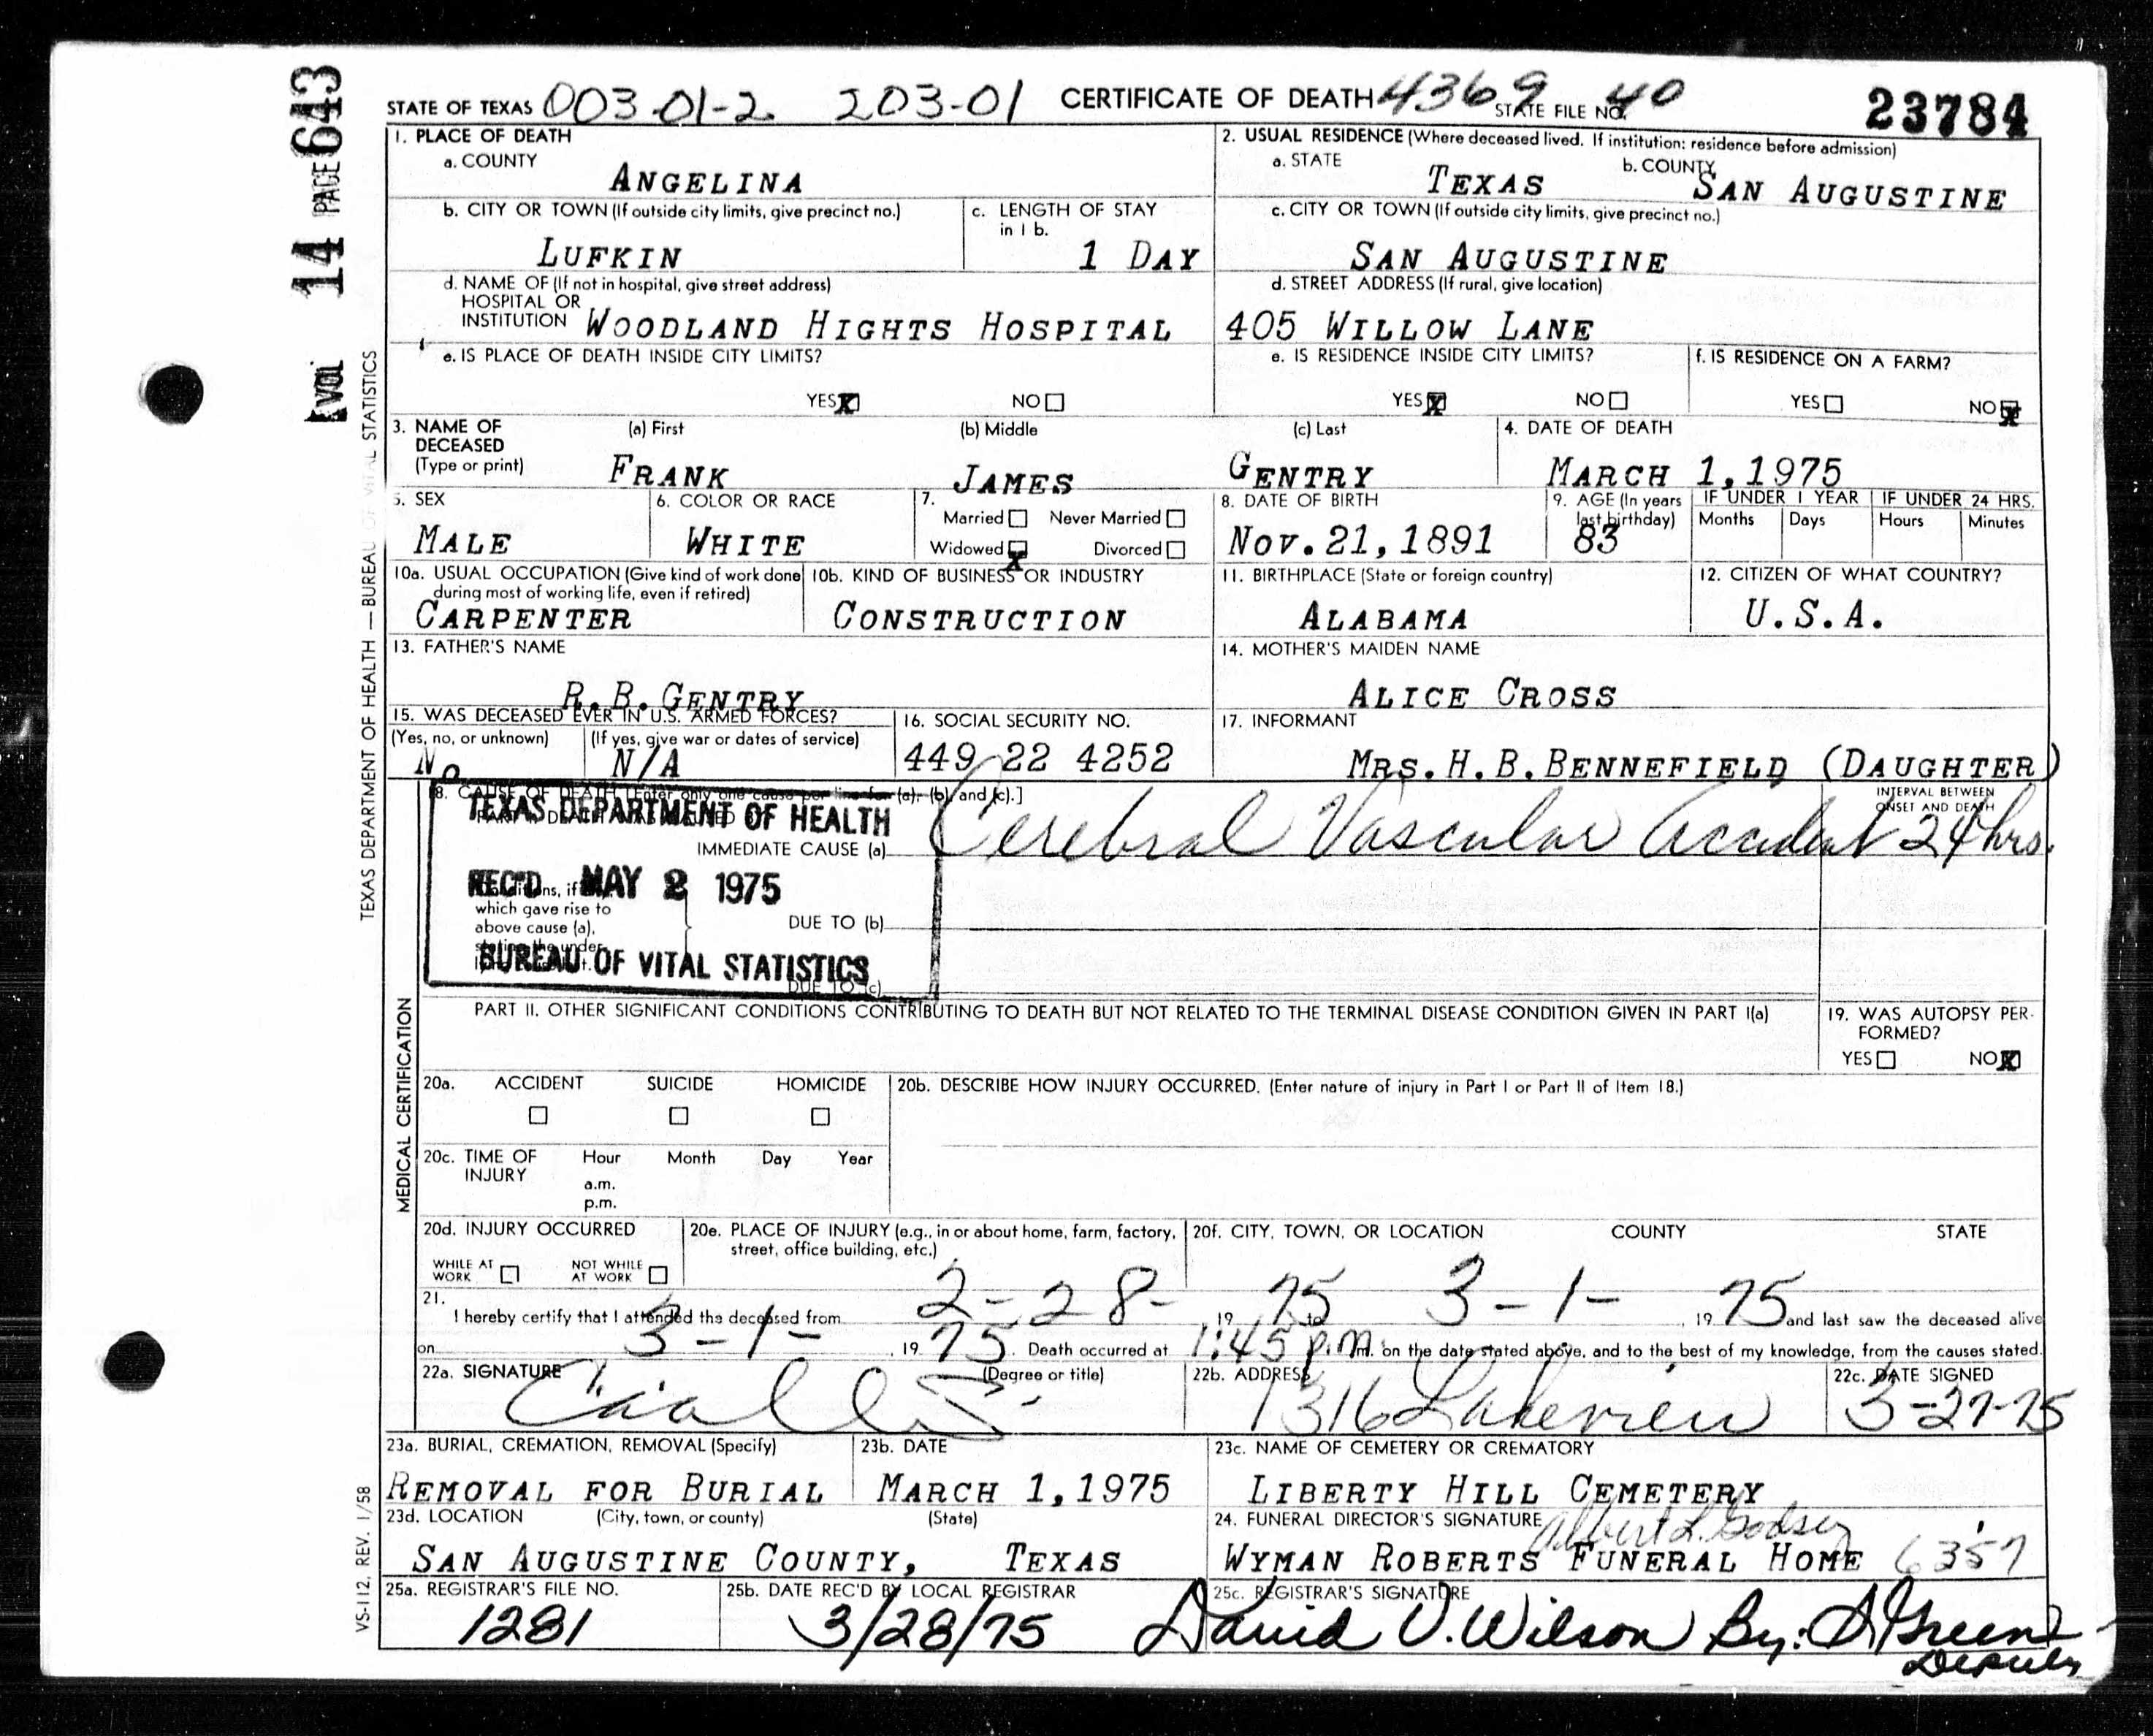 VOL 14 PAGE 643
TEXAS DEPARTMENT OF HEALTH — BUREAU OF VITAL STATISTICS
STATE OF TEXAS 003-01-2 203-01 CERTIFICATE OF DEATH 4369 STATE FILE NO. 40 23784
1. PLACE OF DEATH
a. COUNTY
ANGELINA
2. USUAL RESIDENCE (Where deceased lived. If institution: residence before admission)
a. STATE
TEXAS
b. COUNTY
SAN AUGUSTINE
b. CITY OR TOWN (If outside city limits, give precinct no.)
LUFKIN
c. LENGTH OF STAY
in 1 b.
1 DAY
c. CITY OR TOWN (If outside city limits, give precinct no.)
SAN AUGUSTINE
d. NAME OF (If not in hospital, give street address)
HOSPITAL OR
INSTITUTION WOODLAND HIGHTS HOSPITAL
d. STREET ADDRESS (If rural, give location)
405 WILLOW LANE
e. IS PLACE OF DEATH INSIDE CITY LIMITS?
YES X NO
e. IS RESIDENCE INSIDE CITY LIMITS?
YES X NO
f. IS RESIDENCE ON A FARM?
YES NO X
3. NAME OF
DECEASED
(Type or print)
(a) First
FRANK
(b) Middle
JAMES
(c) Last
GENTRY
4. DATE OF DEATH
MARCH 1, 1975
5. SEX
MALE
6. COLOR OR RACE
WHITE
7.
Married Never Married
Widowed X Divorced
8. DATE OF BIRTH
NOV. 21, 1891
9. AGE (In years
last birthday)
83
IF UNDER 1 YEAR
Months Days
IF UNDER 24 HRS.
Hours Minutes
10a. USUAL OCCUPATION (Give kind of work done
during most of working life, even if retired)
CARPENTER
10b. KIND OF BUSINESS OR INDUSTRY
CONSTRUCTION
11. BIRTHPLACE (State or foreign country)
ALABAMA
12. CITIZEN OF WHAT COUNTRY?
U.S.A.
13. FATHER'S NAME
R. B. GENTRY
14. MOTHER'S MAIDEN NAME
ALICE CROSS
15. WAS DECEASED EVER IN U.S. ARMED FORCES?
(Yes, no, or unknown)
NO
(If yes, give war or dates of service)
N/A
16. SOCIAL SECURITY NO.
449 22 4252
17. INFORMANT
MRS. H. B. BENNEFIELD (DAUGHTER)
MEDICAL CERTIFICATION
18. CAUSE OF DEATH [Enter only one cause per line for (a), (b) and (c).]
INTERVAL BETWEEN
ONSET AND DEATH
TEXAS DEPARTMENT OF HEALTH
IMMEDIATE CAUSE (a) Cerebral Vascular Accident 24 hrs.
REC'D MAY 2 1975
which gave rise to
above cause (a),
stating the under-
DUE TO (b)
BUREAU OF VITAL STATISTICS
DUE TO (c)
PART II. OTHER SIGNIFICANT CONDITIONS CONTRIBUTING TO DEATH BUT NOT RELATED TO THE TERMINAL DISEASE CONDITION GIVEN IN PART I(a)
19. WAS AUTOPSY PER-
FORMED?
YES NO X
20a. ACCIDENT SUICIDE HOMICIDE
20b. DESCRIBE HOW INJURY OCCURRED. (Enter nature of injury in Part I or Part II of Item 18.)
20c. TIME OF
INJURY
Hour Month Day Year
a.m.
p.m.
20d. INJURY OCCURRED
WHILE AT
WORK
NOT WHILE
AT WORK
20e. PLACE OF INJURY (e.g., in or about home, farm, factory,
street, office building, etc.)
20f. CITY, TOWN, OR LOCATION COUNTY STATE
21.
I hereby certify that I attended the deceased from 2-28-, 19 75 to 3-1-, 19 75 and last saw the deceased alive
on 3-1-, 19 75. Death occurred at 1:45 p.m. on the date stated above, and to the best of my knowledge, from the causes stated.
22a. SIGNATURE (Degree or title)
22b. ADDRESS
1316 Lakeview
22c. DATE SIGNED
3-27-75
23a. BURIAL, CREMATION, REMOVAL (Specify)
REMOVAL FOR BURIAL
23b. DATE
MARCH 1, 1975
23c. NAME OF CEMETERY OR CREMATORY
LIBERTY HILL CEMETERY
23d. LOCATION (City, town, or county) (State)
SAN AUGUSTINE COUNTY, TEXAS
24. FUNERAL DIRECTOR'S SIGNATURE Albert L. Godsey
WYMAN ROBERTS FUNERAL HOME 6357
25a. REGISTRAR'S FILE NO.
1281
25b. DATE REC'D BY LOCAL REGISTRAR
3/28/75
25c. REGISTRAR'S SIGNATURE
David V. Wilson By: S Green
Deputy
VS-112, REV. 1/58